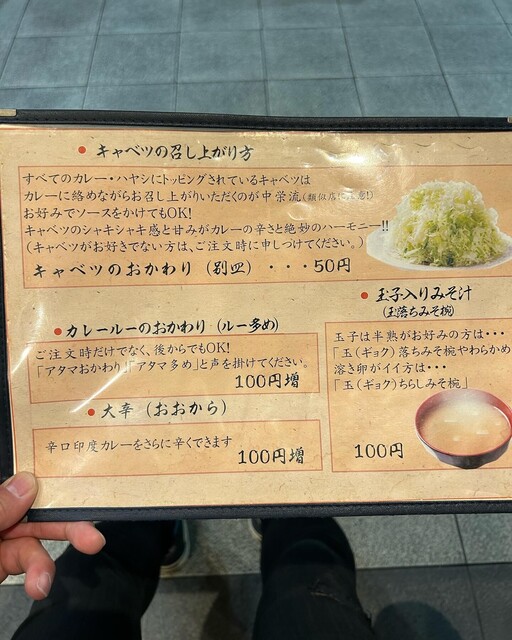 キャベツの召し上がり方
すべてのカレー・ハヤシにトッピングされているキャベツは
カレーに絡めながらお召し上がりいただくのが中栄流(類似店に注意!)
お好みでソースをかけてもOK!
キャベツのシャキシャキ感と甘みがカレーの辛さと絶妙のハーモニー!!
(キャベツがお好きでない方は、ご注文時に申しつけてください。)
キャベツのおかわり (別皿) ・・・50円
カレールーのおかわり (ルー多め)
ご注文時だけでなく、後からでもOK!
「アタマおかわり」「アタマ多め」と声を掛けてください。
100円増
大辛 (おおから)
辛口印度カレーをさらに辛くできます
100円増
玉子入りみそ汁
(玉落ちみそ椀)
玉子は半熟がお好みの方は・・・
「玉(ギョク)落ちみそ椀やわらかめ
溶き卵がイイ方は・・・
「玉(ギョク)ちらしみそ椀」
100円